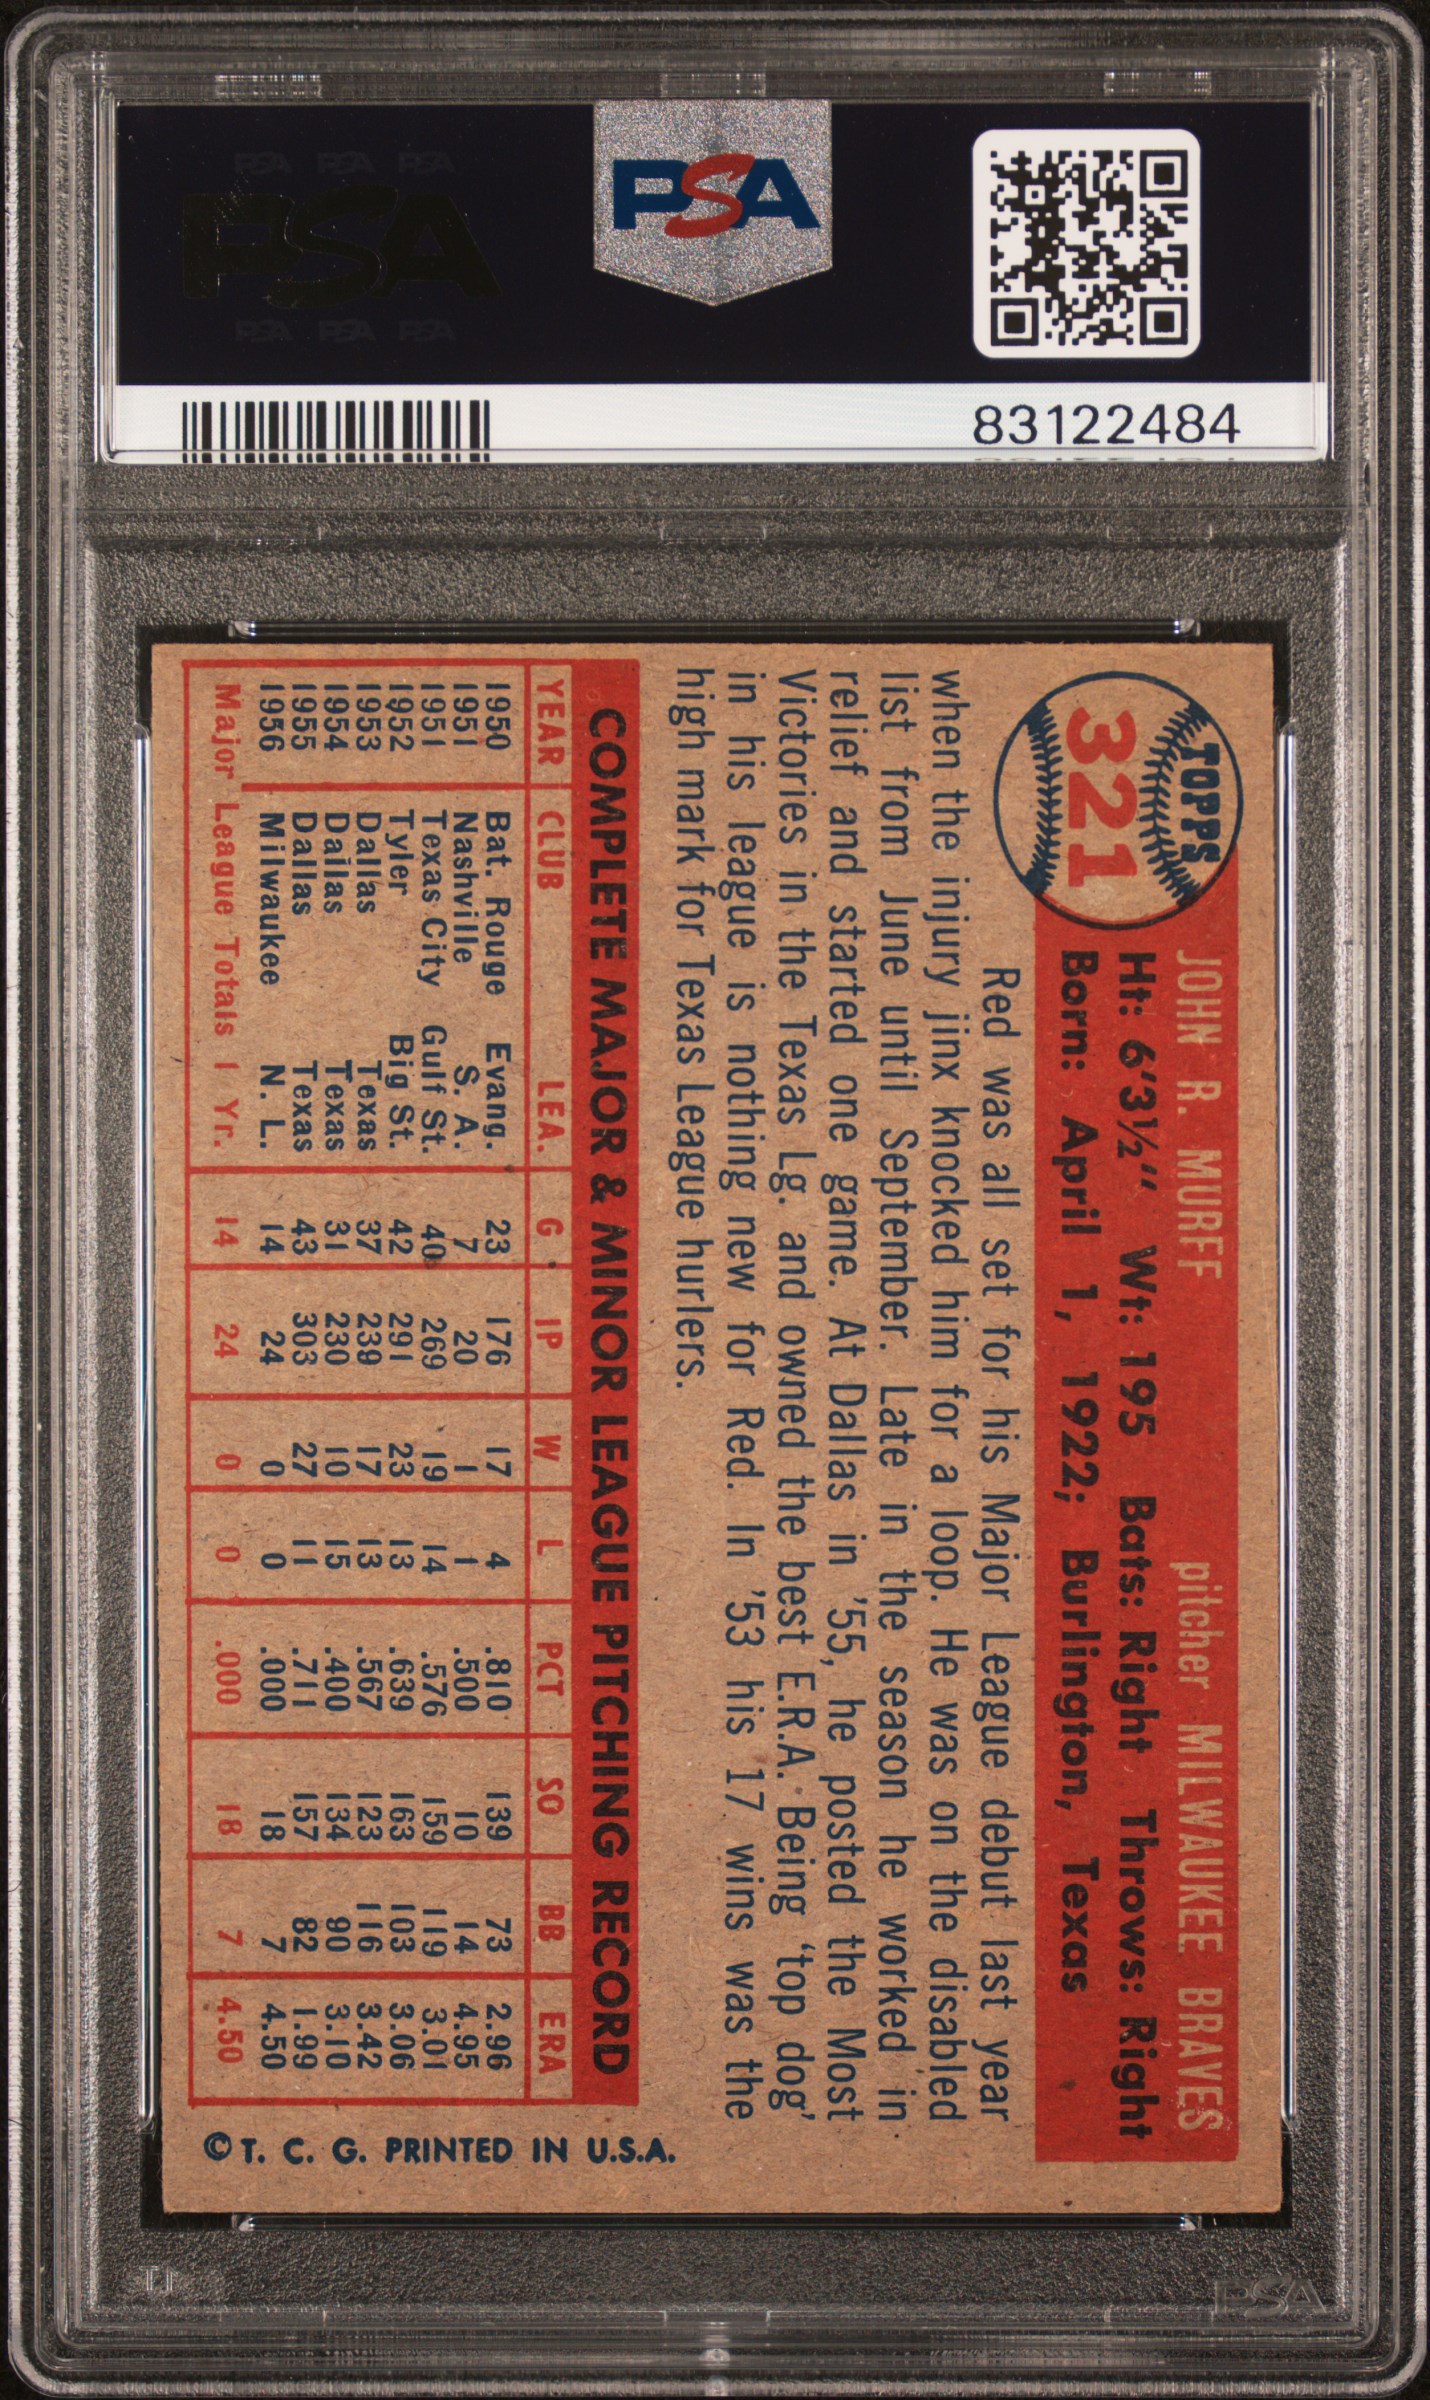 PSA PSA PSA
PSA
PSA PSA PSA
PSA
83122484
TOPPS
321
JOHN R. MURFF pitcher MILWAUKEE BRAVES
Ht: 6'3½" Wt: 195 Bats: Right Throws: Right
Born: April 1, 1922; Burlington, Texas
Red was all set for his Major League debut last year
when the injury jinx knocked him for a loop. He was on the disabled
list from June until September. Late in the season he worked in
relief and started one game. At Dallas in '55, he posted the Most
Victories in the Texas Lg. and owned the best E.R.A. Being 'top dog'
in his league is nothing new for Red. In '53 his 17 wins was the
high mark for Texas League hurlers.
COMPLETE MAJOR & MINOR LEAGUE PITCHING RECORD
YEAR CLUB LEA. G IP W L PCT SO BB ERA
1950 Bat. Rouge Evang. 23 176 17 4 .810 139 73 2.96
1951 Nashville S. A. 7 20 1 1 .500 10 14 4.95
1951 Texas City Gulf St. 40 269 19 14 .576 159 119 3.01
1952 Tyler Big St. 42 291 23 13 .639 163 103 3.06
1953 Dallas Texas 37 239 17 13 .567 123 116 3.42
1954 Dallas Texas 31 230 10 15 .400 134 90 3.10
1955 Dallas Texas 43 303 27 11 .711 157 82 1.99
1956 Milwaukee N. L. 14 24 0 0 .000 18 7 4.50
Major League Totals 1 Yr. 14 24 0 0 .000 18 7 4.50
© T. C. G. PRINTED IN U.S.A.
PSA